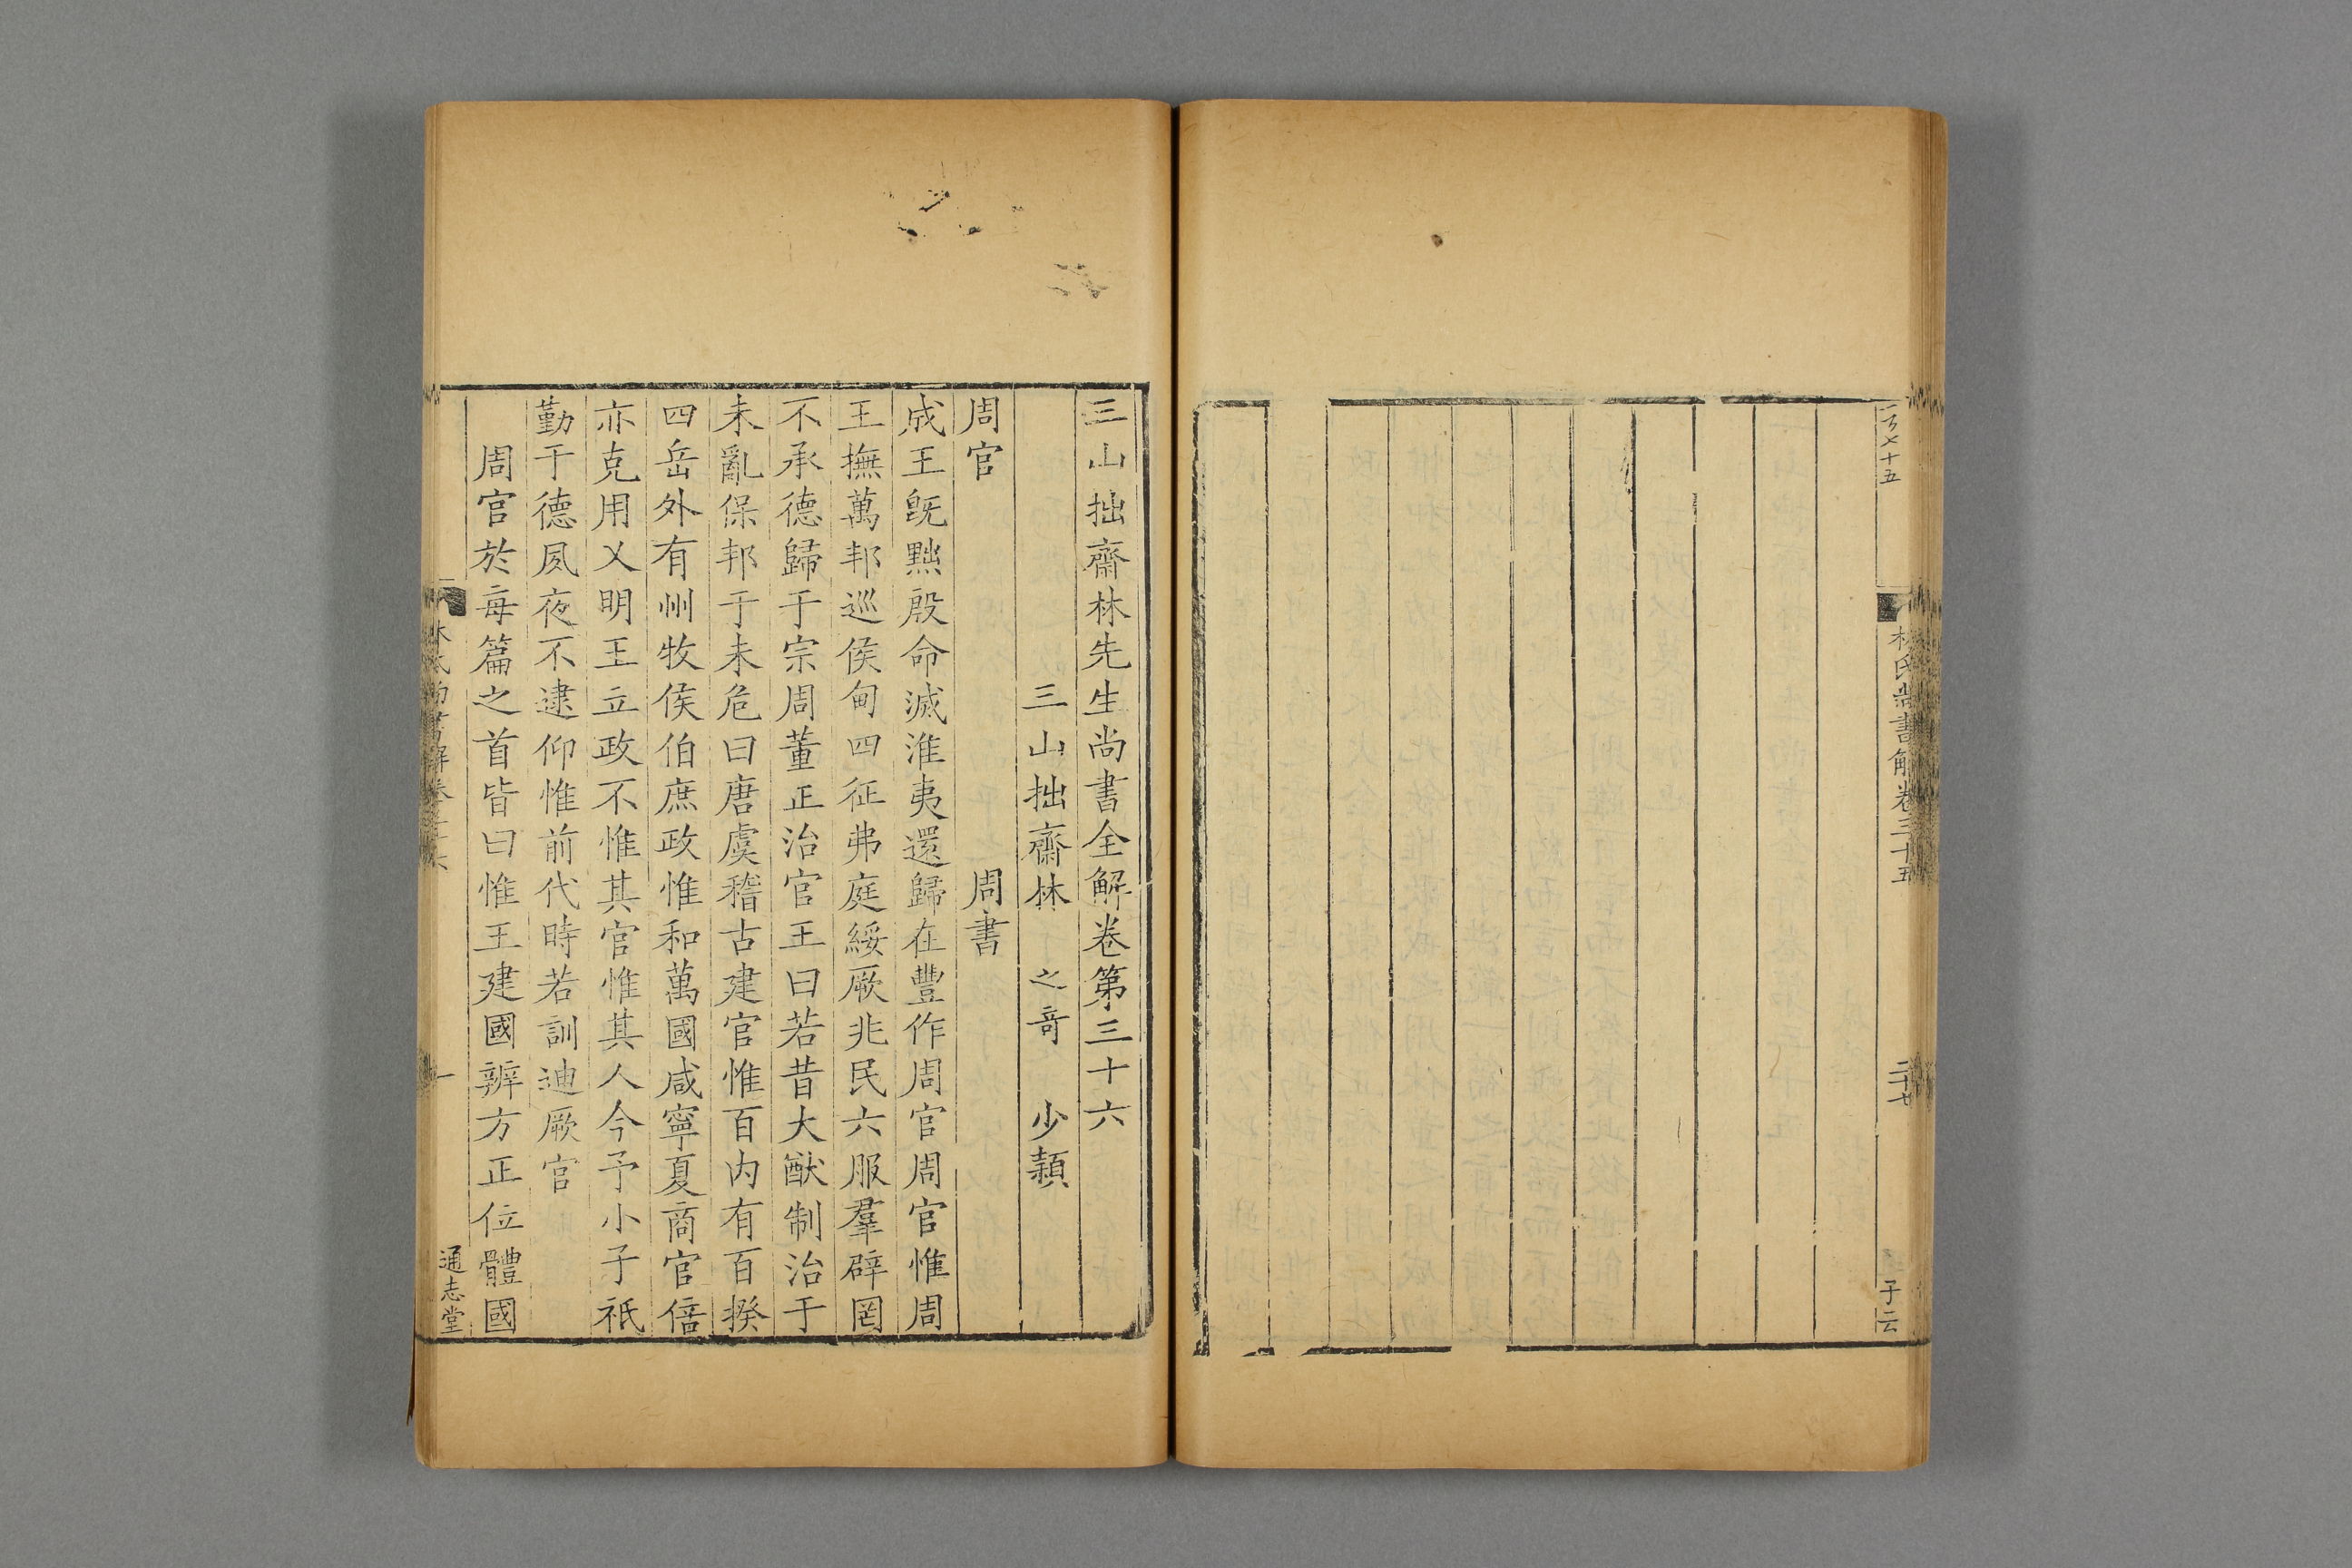 林氏尚書解卷三十五
二十七
三山拙齋林先生尚書全解卷第三十六
三山拙齋林 之竒 少穎
周官 周書
成王既黜殷命滅淮夷還歸在豐作周官周官惟周
王撫萬邦巡侯甸四征弗庭綏厥兆民六服羣辟罔
不承德歸于宗周董正治官王曰若昔大猷制治于
未亂保邦于未危曰唐虞稽古建官惟百内有百揆
四岳外有州牧侯伯庶政惟和萬國咸寧夏商官倍
亦克用乂明王立政不惟其官惟其人今予小子祇
勤于德夙夜不逮仰惟前代時若訓迪厥官
周官於每篇之首皆曰惟王建國辨方正位體國
林氏尚書解卷三十六
一
通志堂